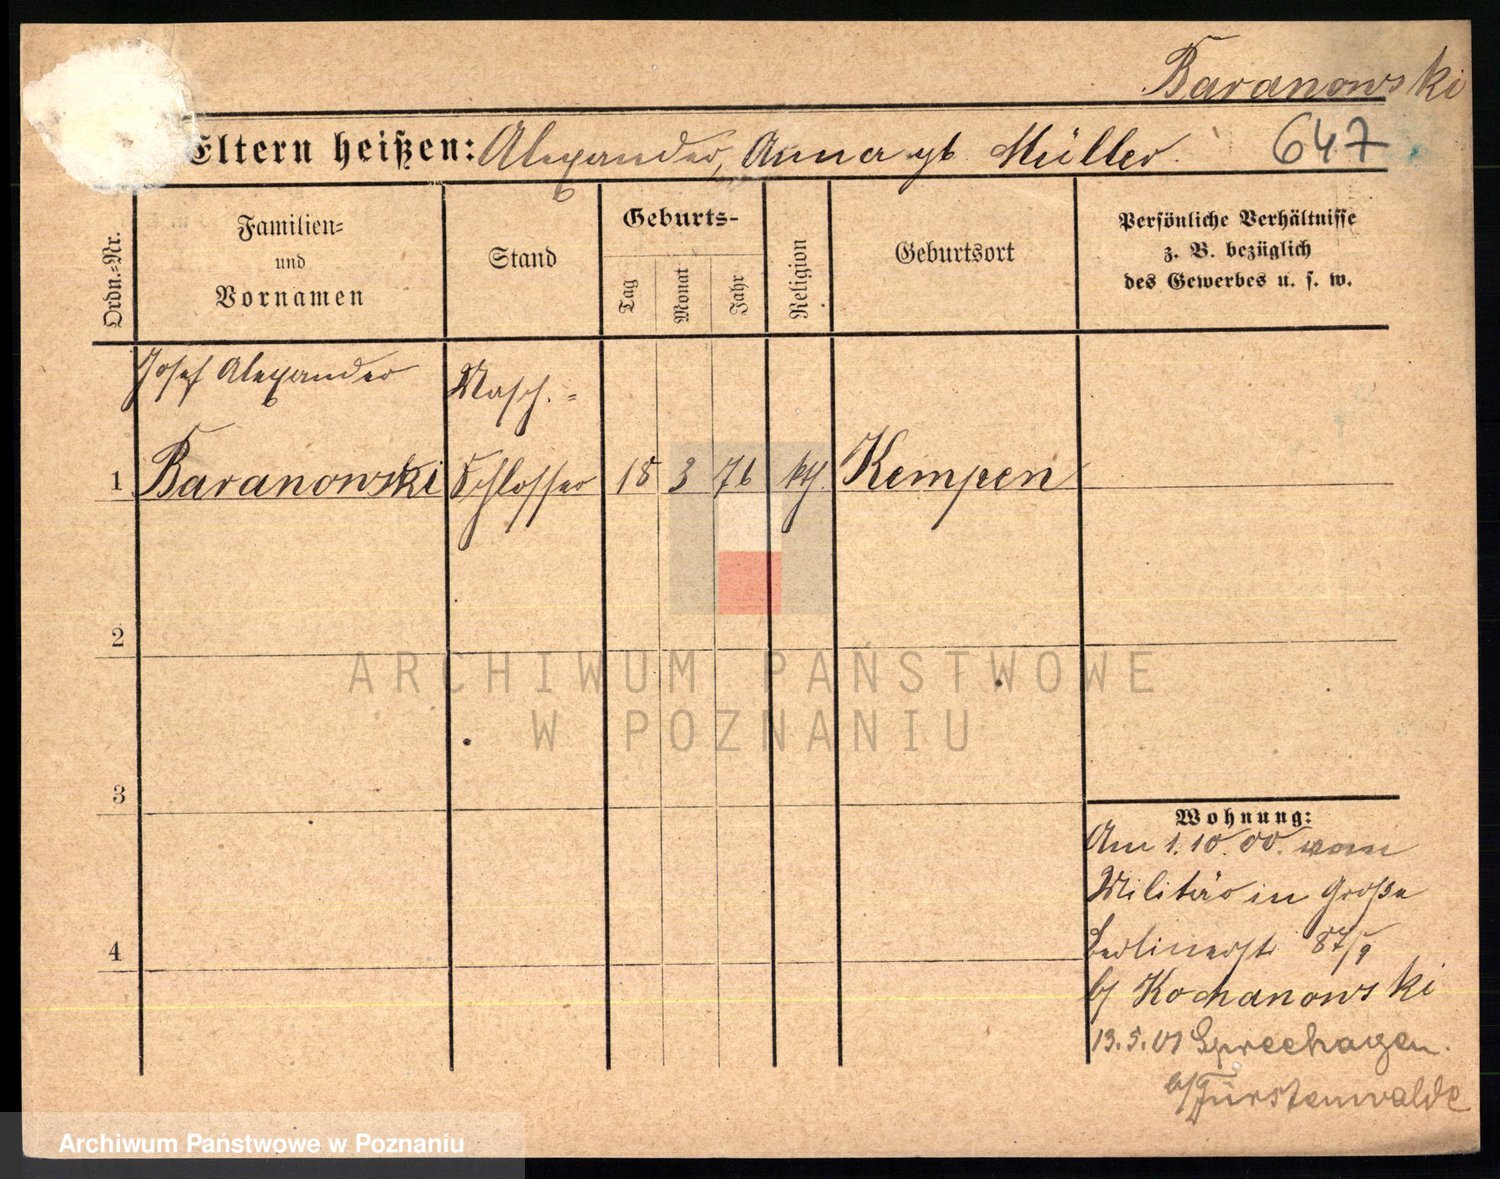 Baranowski
Eltern heißen: Alexander, Anna gb. Müller.
647
Ordn.-Nr.
Familien-
und
Vornamen
Stand
Geburts-
Tag
Monat
Jahr
Religion
Geburtsort
Persönliche Verhältnisse
z. B. bezüglich
des Gewerbes u. s. w.
Josef Alexander
Masch.-
1 Baranowski Schlosser 18 3 76 kth. Kempen
2
ARCHIWUM PAŃSTWOWE
W POZNANIU
3
Wohnung:
Am 1.10.00. vom
Militär in Große
4
Berlinerst. 87/9
b/ Kochanowski
13.5.01 Spreehagen.
b/Fürstenwalde
Archiwum Państwowe w Poznaniu